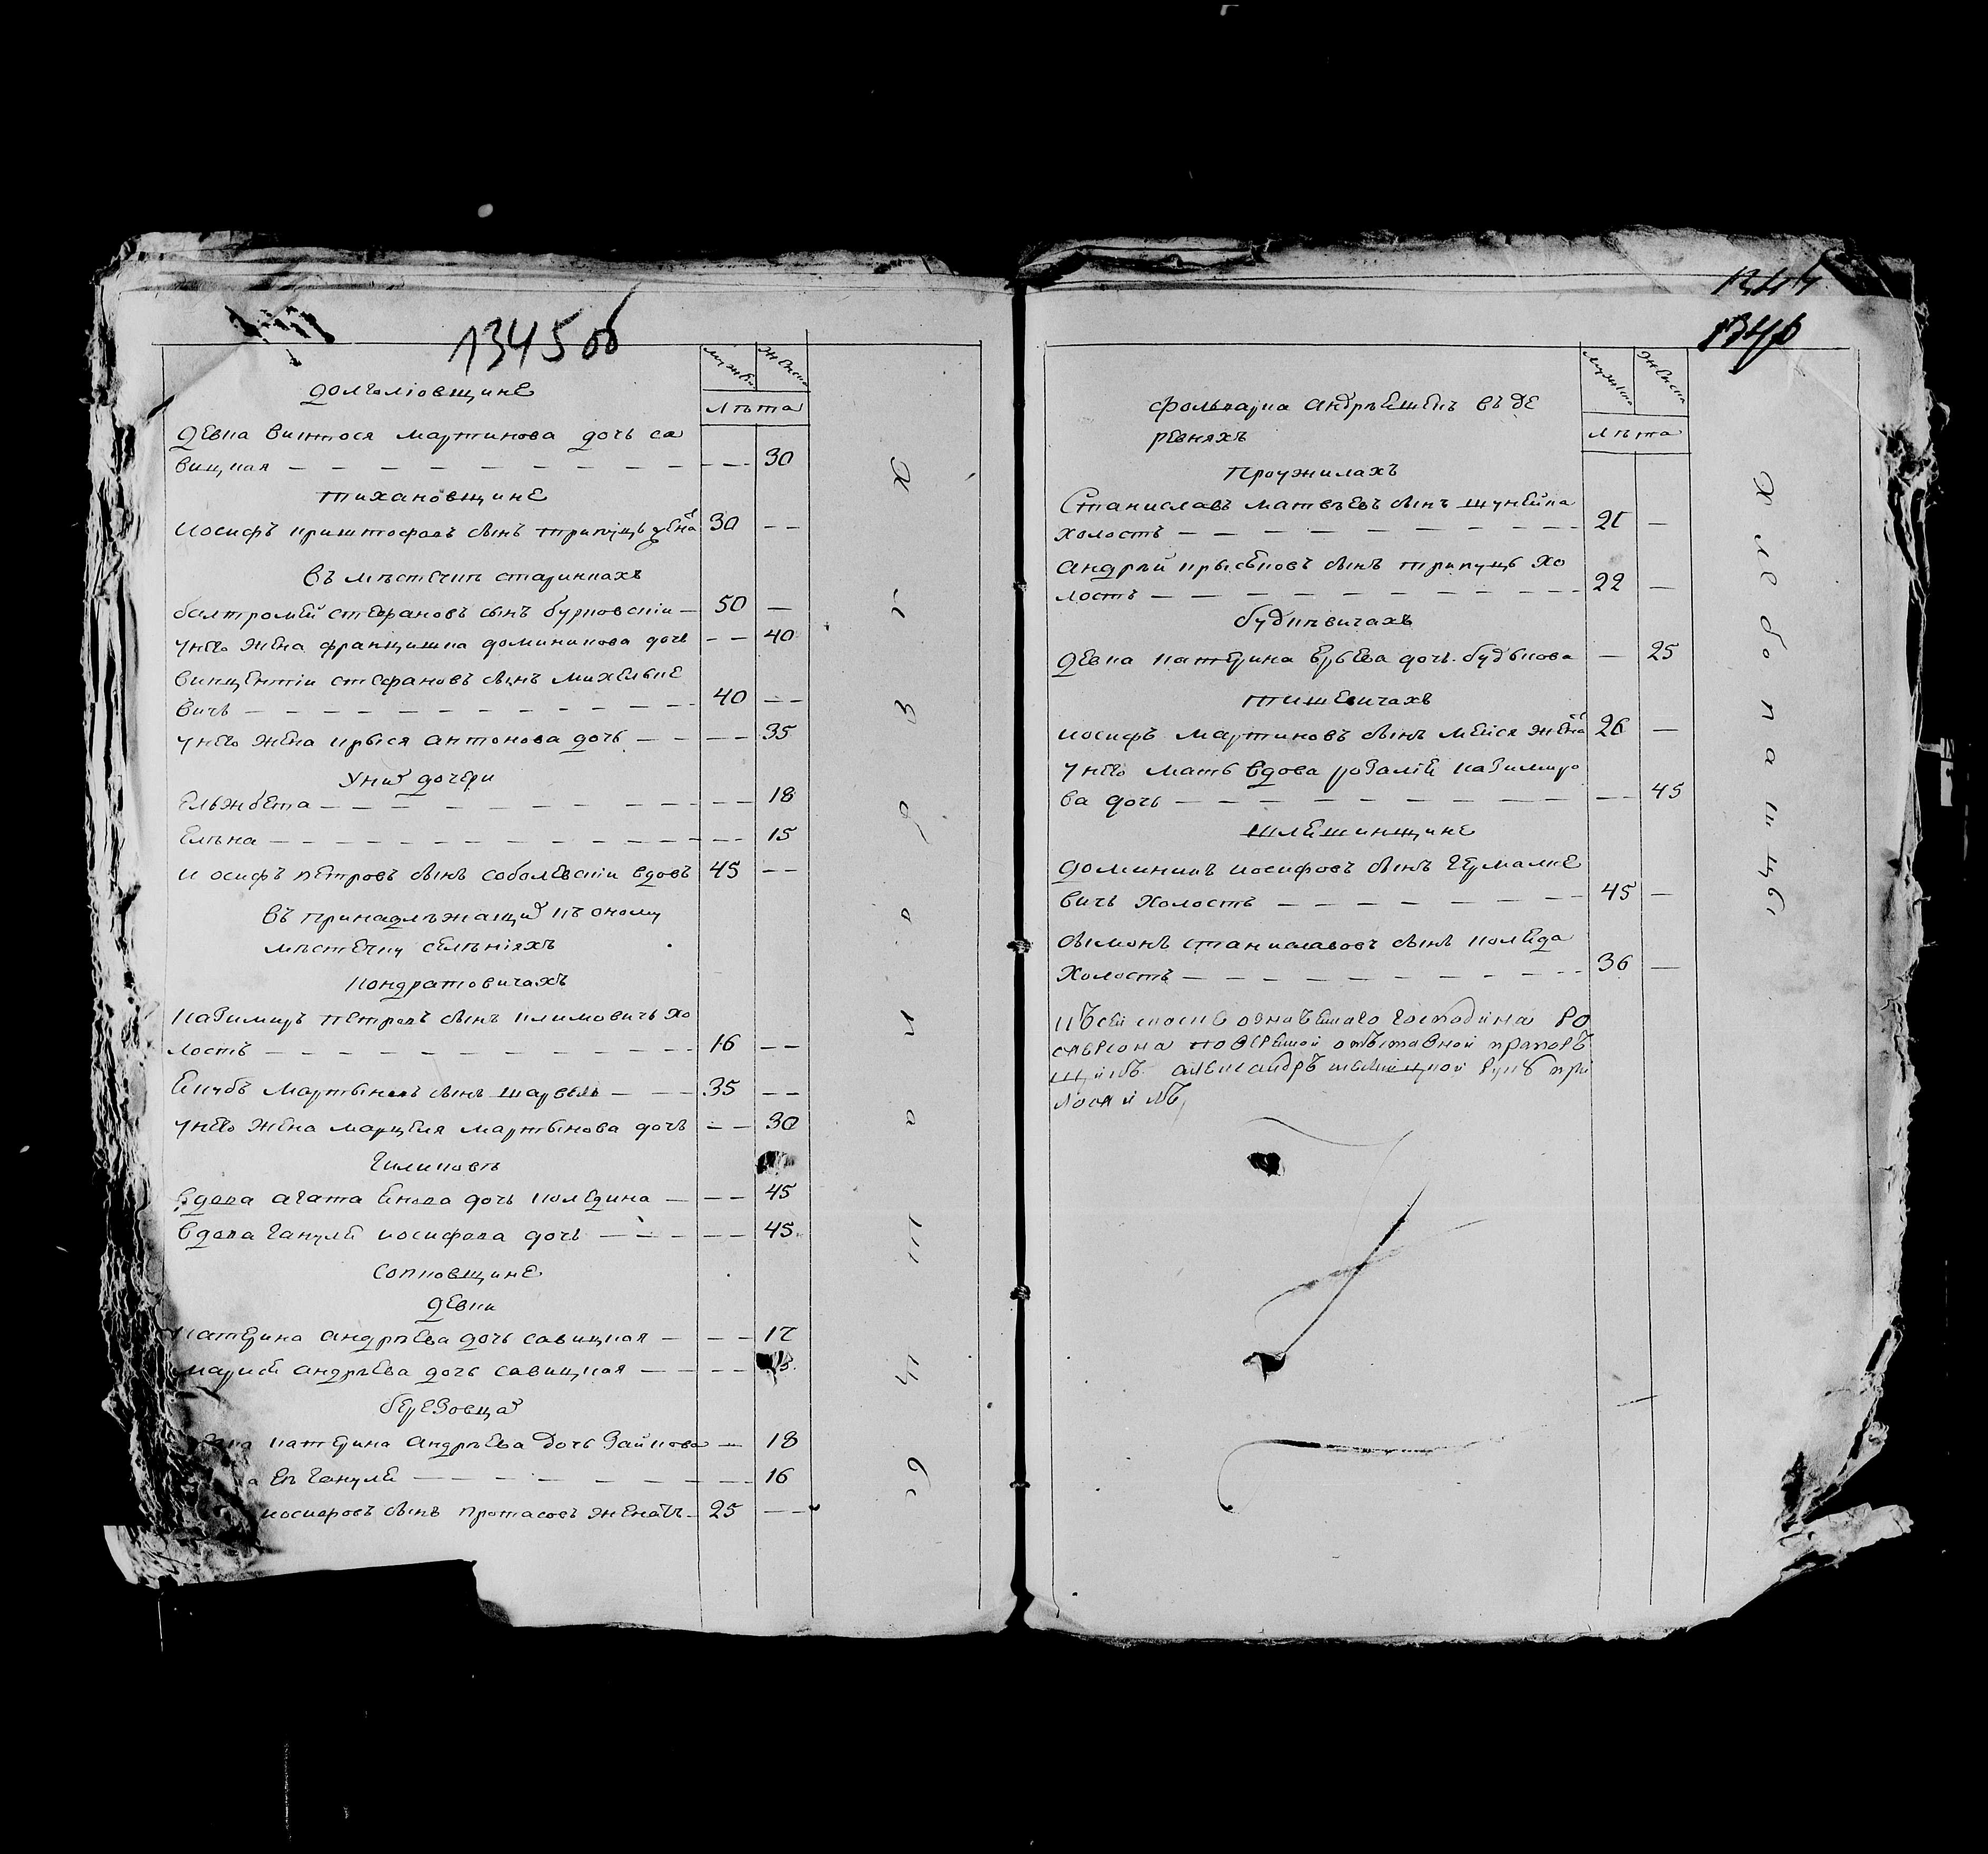 1345 об
мужеска женска
лѣта
долголовщине
девка винтося мартинова дочь са
вицкая — — 30
тихановщине
иосифъ криштофовъ сынъ трипуць женатъ 30 — —
въ мѣстечкѣ старинкахъ
балтромей стефановъ сынъ бурковскіи — 50 —
унего жена францишка доминикова дочь — — 40
винцентіи стефановъ сынъ михелкне
вичъ — — 40 — —
унего жена крыся антонова дочь — — 35
У них дочери
ельжбета — — 18
елѣна — — 15
иосифъ петровъ сынъ соболевскіи вдовъ 45 — —
въ принадлѣжащих къ оному
мѣстечку селѣніяхъ
кондратовичахъ
казимиръ петровъ сынъ климовичъ хо
лостъ — — 16 — —
якубъ мартыновъ сынъ — 35 — —
унего жена марцеля мартынова дочь — — 30
гиликовѣ
вдова агата янова дочь коледина — — — 45
вдова гануля иосифова дочь — — 45
сопковщине
девки
катерина андрѣева дочь савицкая — — — 17
марися андрѣева дочь савицкая — — —
березовца
катерина андрѣева дочь зайкова — 18
гануля — — 16
иосифовъ сынъ протасовъ женатъ 25 — —
1346
мужеска женска
лѣта
фольварка андрѣешекъ въ де
ревняхъ
Проужилахъ
Станиславъ матвѣевъ сынъ шунейка
холостъ — — 21 —
андрѣй сынъ трипуць хо
лостъ — — 22 —
будкѣвичахъ
девка катерина юрьева дочь будькова — 25
тишевичахъ
иосифъ мартиновъ сынъ мейся женатъ 26 —
унего мать вдова розалія казимиро
ва дочь — — — 45
шлешинщине
доминикъ иосифовъ сынъ гермалке
вичъ холостъ — — 45 —
сымонъ станиславовъ сынъ коляда
холостъ — — 36 —
къ сей господина ро
повереной отъставной прапорь
щикъ александръ руку при
ложилъ
Хлебопашцы